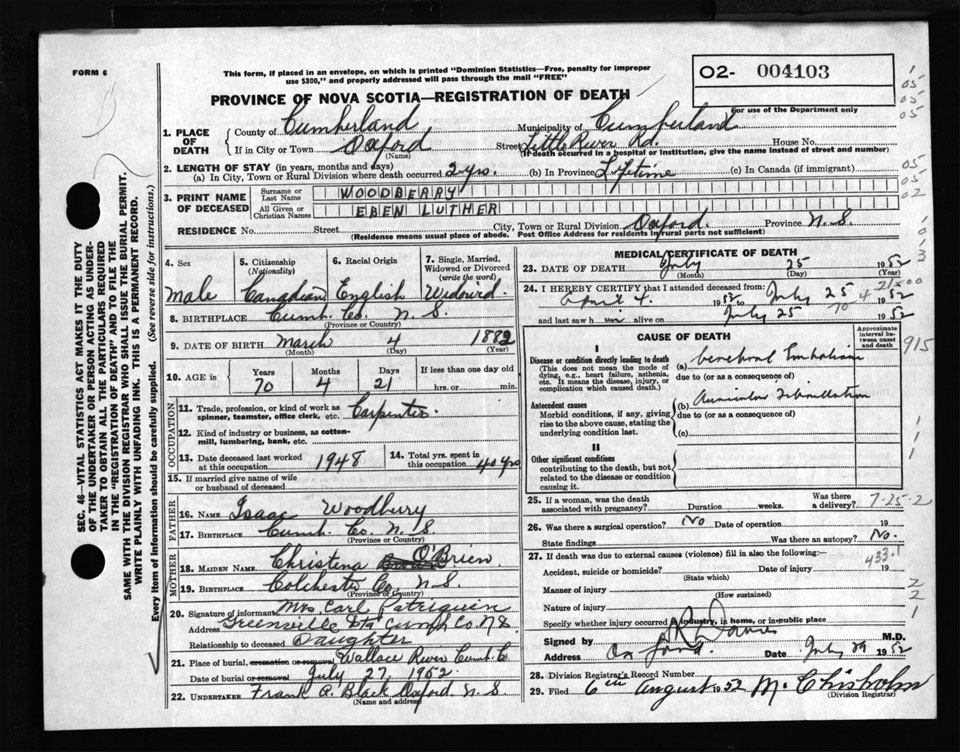 FORM 6
This form, if placed in an envelope, on which is printed "Dominion Statistics—Free, penalty for improper
use $300," and properly addressed will pass through the mail "FREE"
O2- 004103
For use of the Department only
PROVINCE OF NOVA SCOTIA—REGISTRATION OF DEATH
1. PLACE OF DEATH County of Cumberland Municipality of Cumberland
If in City or Town Oxford (Name) Street Little River Rd. House No.
(If death occurred in a hospital or institution, give the name instead of street and number)
2. LENGTH OF STAY (in years, months and days)
(a) In City, Town or Rural Division where death occurred 2 yrs. (b) In Province Lifetime (c) In Canada (if immigrant)
3. PRINT NAME OF DECEASED Surname or Last Name WOODBERRY
All Given or Christian Names EBEN LUTHER
RESIDENCE No. Street City, Town or Rural Division Oxford. Province N.S.
(Residence means usual place of abode. Post Office Address for residents in rural parts not sufficient)
4. Sex Male
5. Citizenship (Nationality) Canadian
6. Racial Origin English
7. Single, Married, Widowed or Divorced (write the word)
8. BIRTHPLACE Cumb. Co. N. S.
(Province or Country)
9. DATE OF BIRTH March 4 1882
(Month) (Day) (Year)
10. AGE in Years 70 Months 4 Days 21 If less than one day old hrs. or min.
OCCUPATION
11. Trade, profession, or kind of work as spinner, teamster, office clerk, etc. Carpenter
12. Kind of industry or business, as cotton-mill, lumbering, bank, etc.
13. Date deceased last worked at this occupation 1948
14. Total yrs. spent in this occupation 40 yrs
15. If married give name of wife or husband of deceased
FATHER
16. Name Isaac Woodbury
17. Birthplace Cumb. Co. N. S.
(Province or Country)
MOTHER
18. Maiden Name Christena O'Brien
19. Birthplace Colchester Co. N. S.
(Province or Country)
20. Signature of informant Mrs Carl Patriquin
Address Greenville Sta Cumb Co. N.S
Relationship to deceased Daughter
21. Place of burial, cremation or removal Wallace River Cumb. C
Date of burial or removal July 27, 1952
22. UNDERTAKER Frank A. Black Oxford N. S.
(Name and address)
MEDICAL CERTIFICATE OF DEATH
23. DATE OF DEATH July 25 1952
(Month) (Day) (Year)
24. I HEREBY CERTIFY that I attended deceased from:
April 4. 1952 to July 25 1952
and last saw him alive on July 25 1952
CAUSE OF DEATH
Approximate interval between onset and death
I
Disease or condition directly leading to death
(This does not mean the mode of dying, e.g., heart failure, asthenia, etc. It means the disease, injury, or complication which caused death.)
(a) Cerebral Embolism
due to (or as a consequence of)
Antecedent causes
Morbid conditions, if any, giving rise to the above cause, stating the underlying condition last.
(b) Auricular Fibrillation
due to (or as a consequence of)
(c)
II
Other significant conditions
contributing to the death, but not related to the disease or condition causing it.
25. If a woman, was the death associated with pregnancy? Duration weeks. Was there a delivery? 7-25-2
26. Was there a surgical operation? No Date of operation 19
State findings Was there an autopsy? No.
27. If death was due to external causes (violence) fill in also the following:—
433.1
Accident, suicide or homicide? Date of injury 19
(State which)
Manner of injury
(How sustained)
Nature of injury
Specify whether injury occurred in industry, in home, or in public place
Signed by M.D.
Address Oxford. Date July 29 1952
28. Division Registrar's Record Number
29. Filed 6th August 1952 M. Chisholm
(Division Registrar)
915
SEC. 46—VITAL STATISTICS ACT MAKES IT THE DUTY
OF THE UNDERTAKER OR PERSON ACTING AS UNDER-
TAKER TO OBTAIN ALL THE PARTICULARS REQUIRED
IN THE "REGISTRATION OF DEATH" AND TO FILE THE
SAME WITH THE DIVISION REGISTRAR WHO SHALL ISSUE THE BURIAL PERMIT.
WRITE PLAINLY WITH UNFADING INK. THIS IS A PERMANENT RECORD.
Every item of information should be carefully supplied. (See reverse side for instructions.)